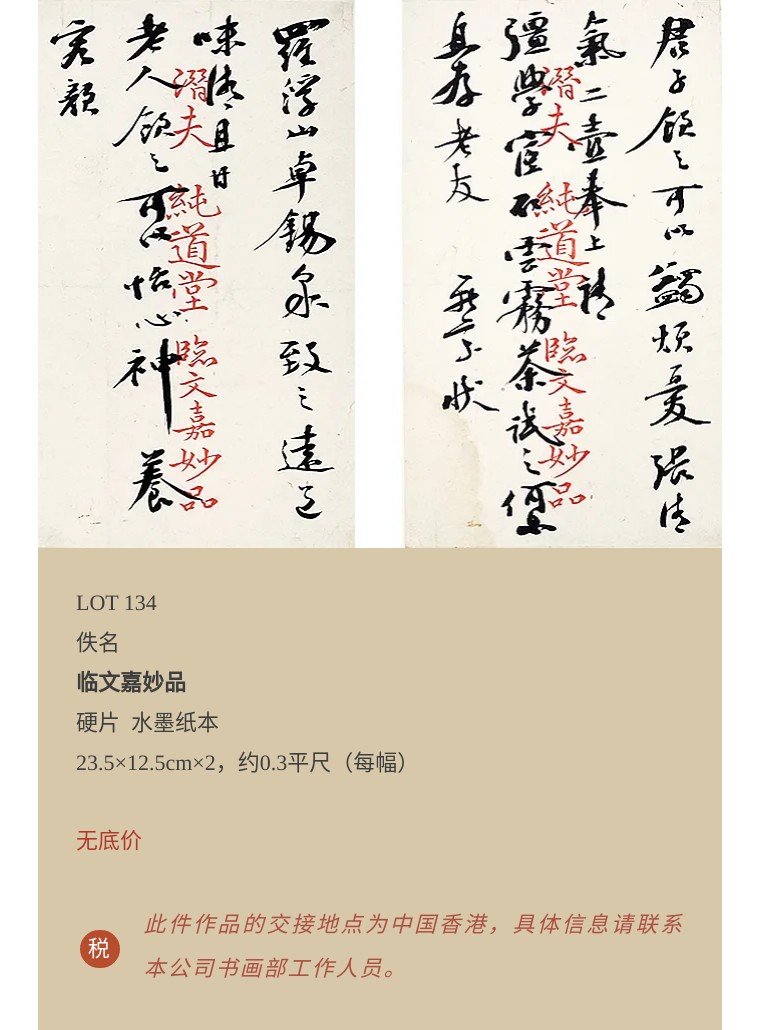 君子領之可以蠲煩憂張清
氣二壺奉上請
彊學宦

雲霧茶試之何如
且存老友
無言狀
潛夫 純道堂 臨文嘉妙品
羅浮山卓錫泉致之遠道
味清且甘
老人領之可以怡心神 養
容顏
潛夫 純道堂 臨文嘉妙品
LOT 134
佚名
临文嘉妙品
硬片 水墨纸本
23.5×12.5cm×2，约0.3平尺（每幅）
无底价
税
此件作品的交接地点为中国香港，具体信息请联系
本公司书画部工作人员。